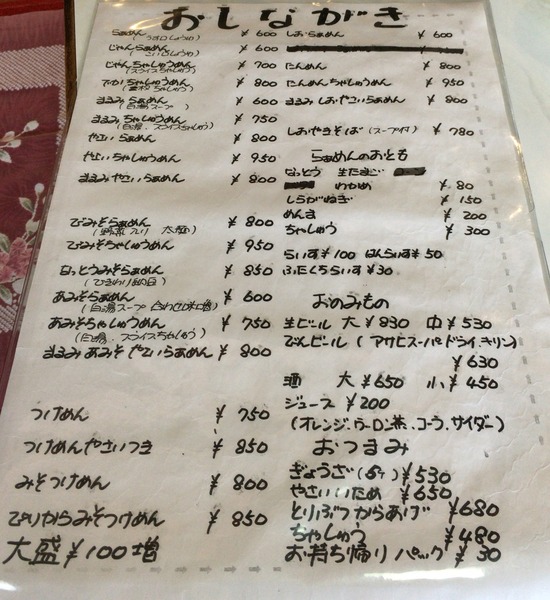 おしながき
らぁめん ¥600
(うす口しょうゆ)
じゃんらぁめん ¥600
(こい口しょうゆ)
じゃんちゃしゅうめん ¥700
(スライスちゃしゅう)
ちゃしゅうめん ¥800
まるみらぁめん ¥600
(白湯スープ)
¥750
(白湯、スライスちゃしゅう)
やさいらぁめん ¥800
やさいちゃしゅうめん ¥950
まるみやさいらぁめん ¥800
びみそらぁめん ¥800
(野菜入り 大盛)
びみそちゃしゅうめん ¥950
なっとうみそらぁめん ¥850
(ひきわり納豆)
あみそらぁめん ¥600
(白湯スープ 合わせ味噌)
あみそちゃしゅうめん ¥750
(白湯、スライスちゃしゅう)
まるみあみそやさいらぁめん ¥800
つけめん ¥750
つけめんやさいつき ¥850
みそつけめん ¥800
ぴりからみそつけめん ¥850
大盛¥100増
しおらぁめん ¥600
たんめん ¥800
たんめんちゃしゅうめん ¥950
まるみしおやさいらぁめん ¥800
しおやきそば(スープ付) ¥780
らぁめんのおとも
なっとう 生たまご
わかめ ¥80
しらがねぎ ¥150
めんま ¥200
ちゃしゅう ¥300
らいす¥100 はんらいす¥50
ふたくちらいす¥30
おのみもの
生ビール 大¥830 中¥530
びんビール(アサヒスーパードライ、キリン)
¥630
酒 大¥650 小¥450
ジュース ¥200
(オレンジ、ウーロン茶、コーラ、サイダー)
おつまみ
ぎょうざ(5ヶ)¥530
やさいいため ¥650
とりぶつからあげ ¥680
ちゃしゅう ¥480
お持ち帰りパック ¥30